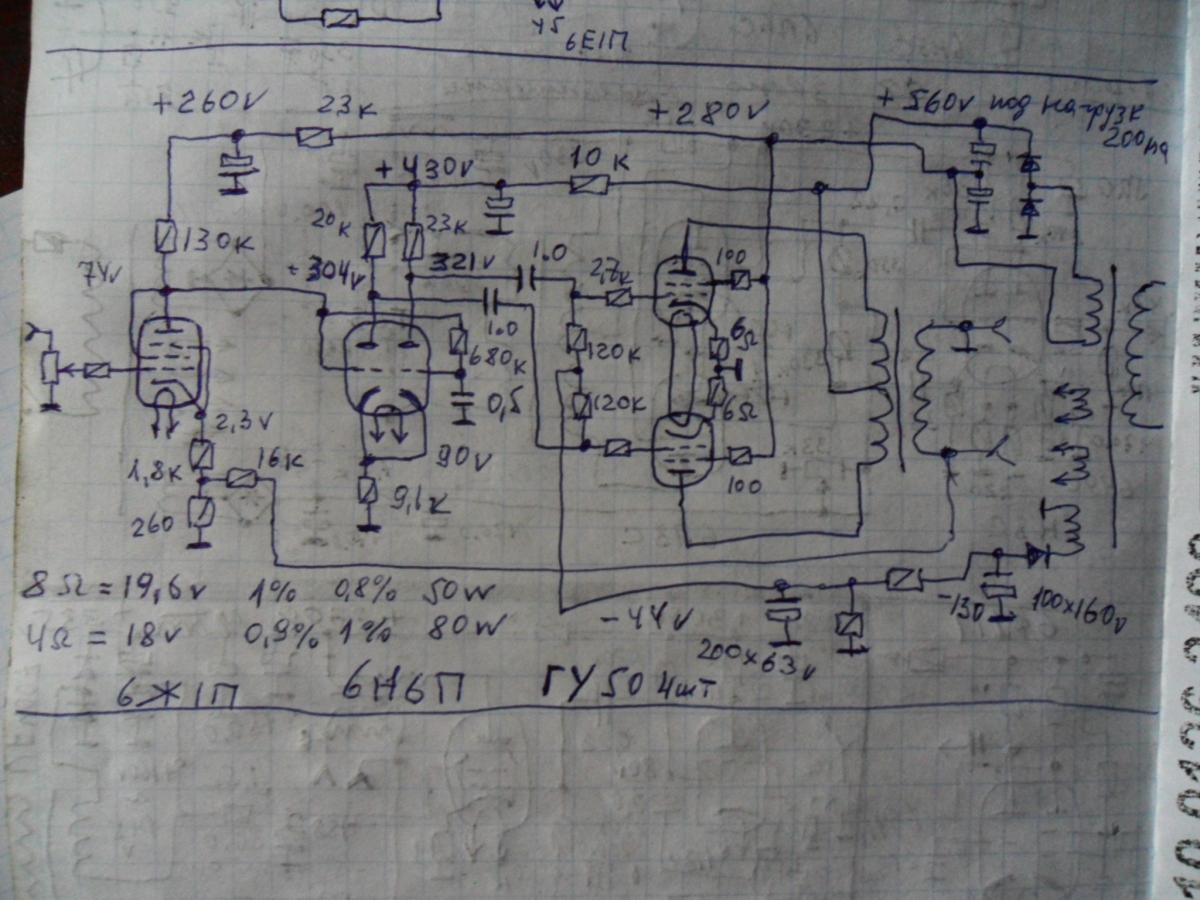 У5
6Е1П
+260v 23к +280v +560v под нагрузк
200ма
+430v 10к
130к 20к 23к
74v = 304v 321v 1.0 2,7к 100
1.0
680к 120к 6Ω
0,5 120к 6Ω
2,3v
1,8к 16к 90v 100
260 9,1к
8Ω = 19,6v 1% 0,8% 50w
4Ω = 18v 0,9% 1% 80w
-44v -130 100x160v
200x63v
6Ж1П 6Н6П ГУ50 4шт